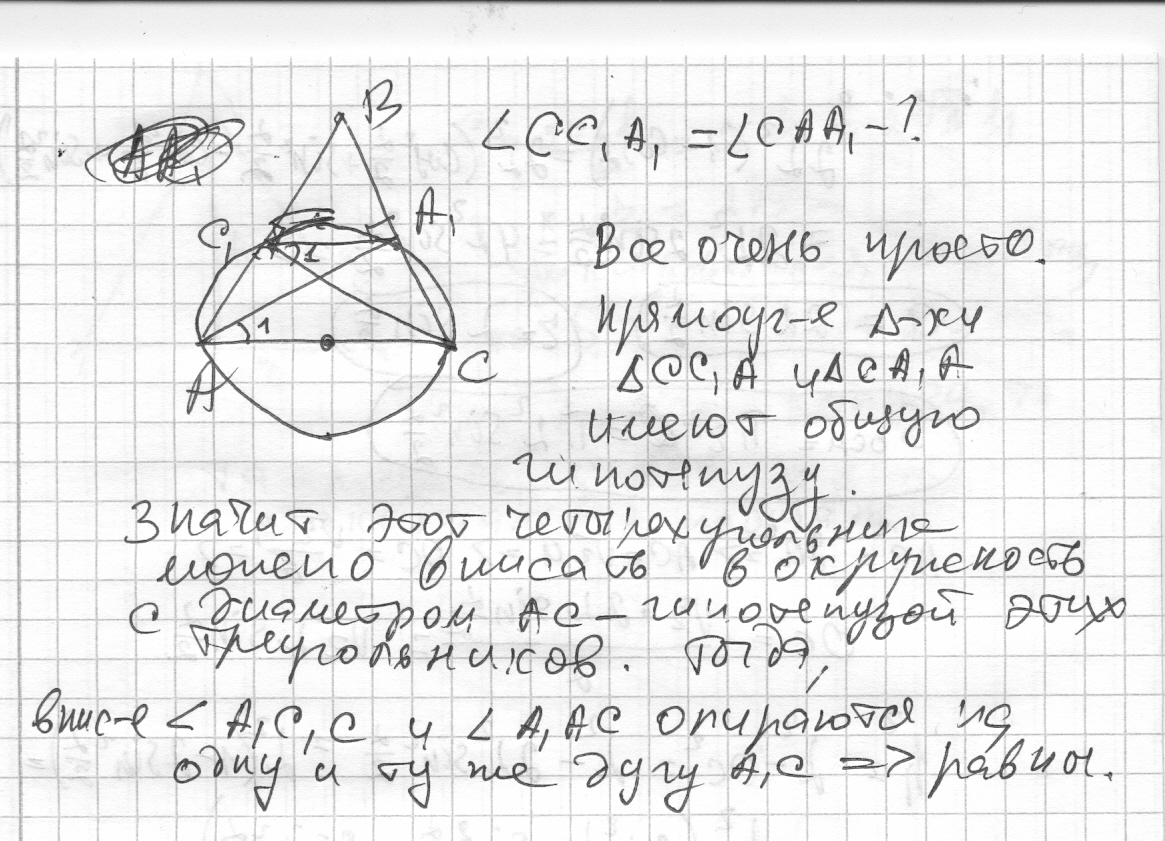 B
∠CC₁A₁ = ∠CAA₁ - ?
A₁
C₁
1
1
A
C
Все очень просто.
Прямоуг-е Δ-ки
ΔCC₁A и ΔCA₁A
имеют общую
гипотенузу.
Значит этот четырехугольник
можно вписать в окружность
с диаметром AC - гипотенузой этих
треугольников. Тогда,
впис-е ∠A₁C₁C и ∠A₁AC опираются на
одну и ту же дугу A₁C => равны.